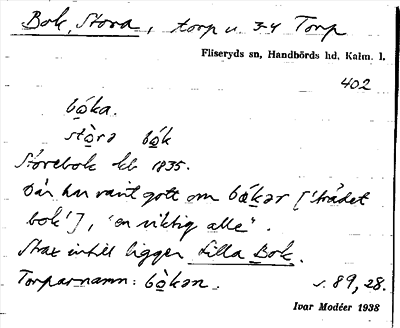 Bok, Stora, torp u. 3-4 Torp
Fliseryds sn, Handbörds hd, Kalm. l.
402
bo̲ka.
sto̲rə bo̲k
Storebok kb 1835.
Där har varit gott om bo̲kər ['trädet
bok'], 'en riktig allé'.
Strax intill ligger Lilla Bok.
Torparnamn: bo̲kən. s. 89, 28.
Ivar Modéer 1938